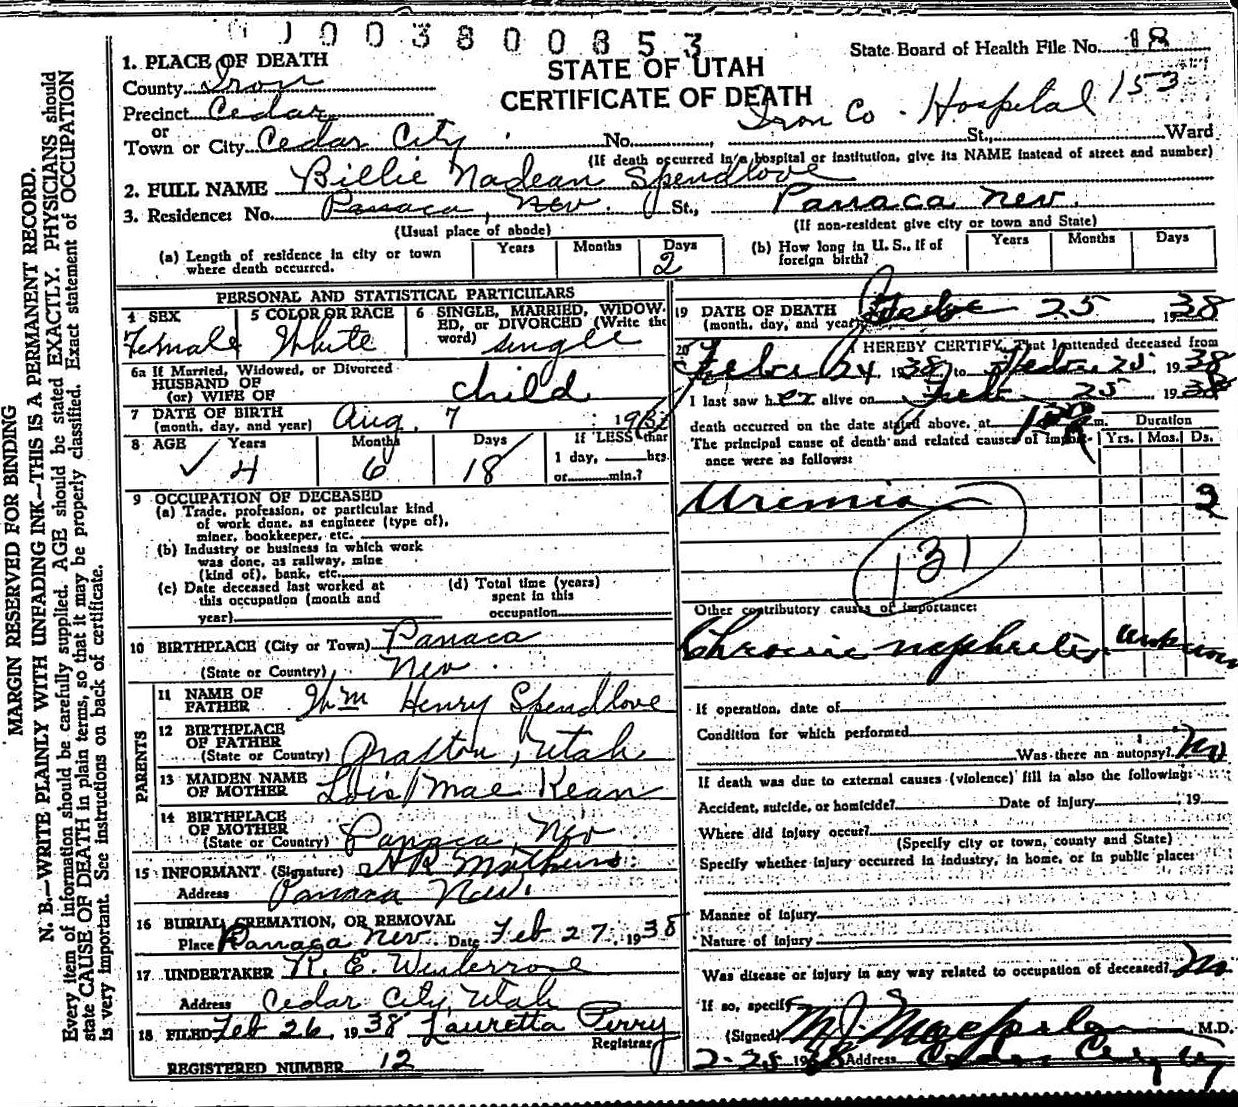 0 0 3 8 0 0 8 5 3
State Board of Health File No. 18
STATE OF UTAH
CERTIFICATE OF DEATH
153
1. PLACE OF DEATH
County Iron
Precinct Cedar
or
Town or City Cedar City No. Iron Co. Hospital St., Ward
(If death occurred in a hospital or institution, give its NAME instead of street and number)
2. FULL NAME Billie Nadean Spendlove
3. Residence: No. Panaca, Nev. St., Panaca Nev.
(Usual place of abode) (If non-resident give city or town and State)
(a) Length of residence in city or town where death occurred. Years Months Days 2
(b) How long in U. S., if of foreign birth? Years Months Days
PERSONAL AND STATISTICAL PARTICULARS
4 SEX Female
5 COLOR OR RACE White
6 SINGLE, MARRIED, WIDOWED, or DIVORCED (Write the word) single
6a If Married, Widowed, or Divorced
HUSBAND OF
(or) WIFE OF child
7 DATE OF BIRTH
(month, day, and year) Aug. 7
8 AGE Years 4 Months 6 Days 18 If LESS than
1 day, hrs.
or min.?
9 OCCUPATION OF DECEASED
(a) Trade, profession, or particular kind
of work done, as engineer (type of),
miner, bookkeeper, etc.
(b) Industry or business in which work
was done, as railway, mine
(kind of), bank, etc.
(c) Date deceased last worked at
this occupation (month and
year)
(d) Total time (years)
spent in this
occupation
10 BIRTHPLACE (City or Town) Panaca
(State or Country) Nev.
PARENTS
11 NAME OF
FATHER Wm Henry Spendlove
12 BIRTHPLACE
OF FATHER
(State or Country) Grafton, Utah
13 MAIDEN NAME
OF MOTHER Lois Mae Kean
14 BIRTHPLACE
OF MOTHER
(State or Country) Panaca, Nev
15 INFORMANT (Signature) A R Mathews
Address Panaca Nev.
16 BURIAL, CREMATION, OR REMOVAL
Place Panaca Nev. Date Feb 27, 1938
17 UNDERTAKER R. E. Winterrose
Address Cedar City, Utah
18 FILED Feb 26, 1938 Lauretta Perry
Registrar
REGISTERED NUMBER 12
19 DATE OF DEATH
(month, day, and year) 25 1938
20 I HEREBY CERTIFY, That I attended deceased from
24 1938 to 25 1938
I last saw her alive on Feb 25 1938
death occurred on the date stated above, at m.
The principal cause of death and related causes of importance were as follows:
Duration
Yrs. Mos. Ds.
Uremia 2
131
Other contributory causes of importance:
Chronic nephritis unknown
If operation, date of
Condition for which performed
Was there an autopsy? No
If death was due to external causes (violence) fill in also the following:
Accident, suicide, or homicide? Date of injury 19
Where did injury occur?
(Specify city or town, county and State)
Specify whether injury occurred in industry, in home, or in public place:
Manner of injury
Nature of injury
Was disease or injury in any way related to occupation of deceased? No
If so, specify
(Signed) M.D.
2-25 1938 Address Cedar City
MARGIN RESERVED FOR BINDING
N. B.—WRITE PLAINLY WITH UNFADING INK—THIS IS A PERMANENT RECORD.
Every item of information should be carefully supplied. AGE should be stated EXACTLY. PHYSICIANS should
state CAUSE OF DEATH in plain terms, so that it may be properly classified. Exact statement of OCCUPATION
is very important. See instructions on back of certificate.